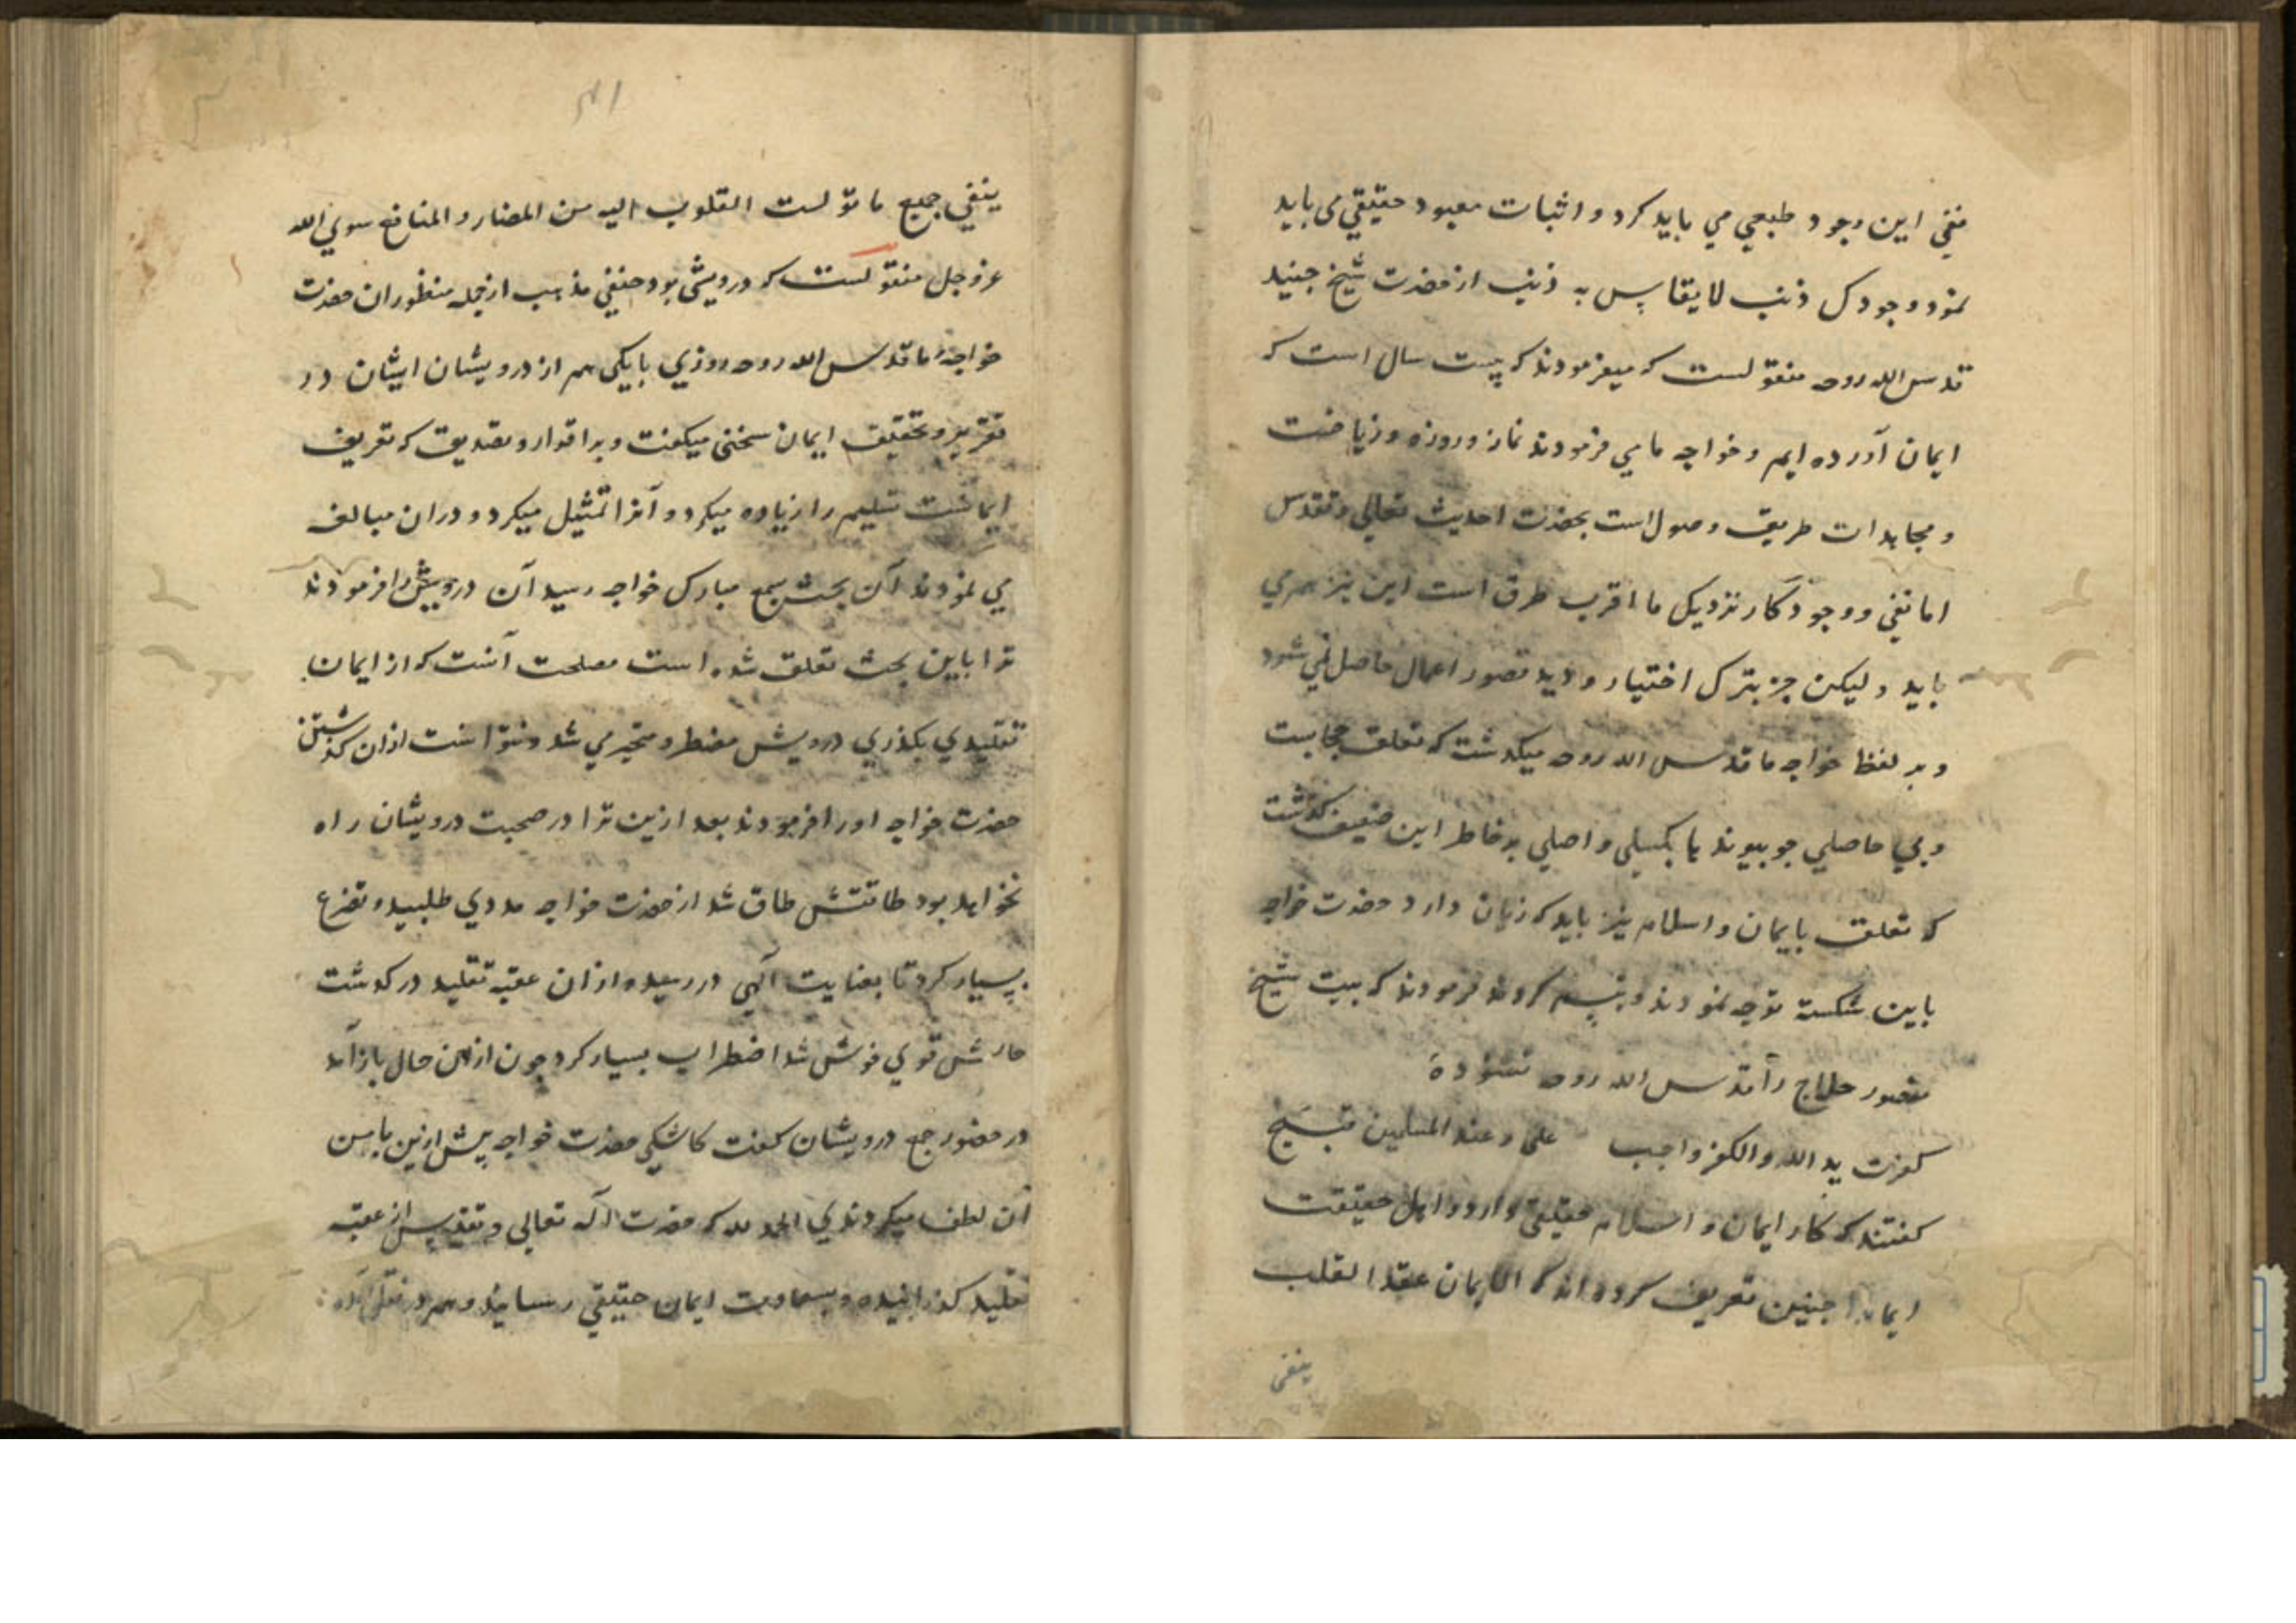 نفي اين وجود طبعي مي بايد كرد و اثبات معبود حقيقي مي بايد
نمود وجودك ذنب لا يقاس به ذنب از حضرت شيخ جنيد
قدس الله روحه منقولست كه ميفرمودند كه بيست سال است كه
ايمان آورده ايم و خواجه ما مي فرمودند نماز و روزه و رياضت
و مجاهدات طريق وصول است بحضرت احديث تعالي و تقدس
اما نفي وجود نزديك ما اقرب طرق است اين نيز هم مي
بايد وليكن جز بترك اختيار و ديد قصور اعمال حاصل نمي شود
و بر لفظ خواجه ما قدس الله روحه ميكذشت كه تعلق حجابست
و بي حاصلي چو پيوندها بكسلي واصلي بر خاطر اين ضعيف كذشت
كه تعلق بايمان و اسلام نيز بايد كه زيان دارد حضرت خواجه
باين شكسته توجه نمودند و تبسم كردند فرمودند كه بيت شيخ
منصور حلاج را قدس الله روحه نشنوده
كفرت بدين الله والكفر واجب علي وعند المسلمين قبيح
كفتند كه كار ايمان و اسلام حقيقي دارد و اهل حقيقت
ايمانرا چنين تعريف كرده اند كه الايمان عقد القلب
ينفي
ينفي جميع ما تولست القلوب اليه من المضار و المنافع سوي الله
عز وجل منقولست كه درويشي بود حنفي مذهب از جمله منظوران حضرت
خواجهٔ ما قدس الله روحه روزي با يكي هم از درويشان ايشان در
تقرير و تحقيق ايمان سخني ميكفت و بر اقرار و تصديق كه تعريف
ايمانست تسليم را زياده ميكرد و آنرا تمثيل ميكرد و دران مبالغه
مي نمودند آن بحث بسمع مبارك خواجه رسيد آن درويش را فرمودند
ترا باين بحث تعلق شده است مصلحت آنست كه از ايمان
تقليدي بكذري درويش مضطر و متحير مي شد و نتوانست ازان كذشتن
حضرت خواجه اورا فرمودند بعد ازين ترا در صحبت درويشان راه
نخواهد بود طاقتش طاق شد از حضرت خواجه مددي طلبيد و تضرع
بسيار كرد تا بعنايت آلهي در رسيد و ازان عقبه تقليد در كذشت
حالش قوي خوش شد اضطراب بسيار كرد چون ازان حال باز آمد
در حضور جمع درويشان كفت كاشكي حضرت خواجه پيش ازين با من
آن لطف ميكردندي الحمد لله كه حضرت اله تعالي و تقديس از عقبه
تقليد كذرانيده و بسعادت ايمان حقيقي رسانيد و هم در نقل آمده